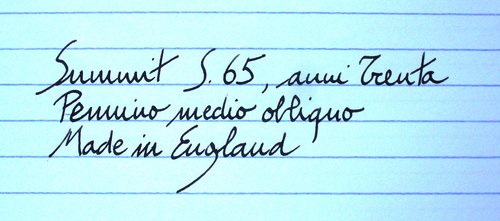 Summit S. 65, anni Trenta
Pennino medio obliquo
Made in England